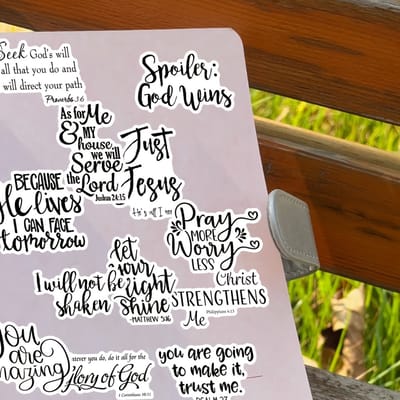 Seek God's will
all that you do and
will direct your path
Proverbs 3:6
Spoiler:
God Wins
As for Me
& MY
house,
we will
Serve
the Lord
Joshua 24:15
Just
Jesus
He's all I
BECAUSE
He lives
I CAN FACE
tomorrow
Pray
MORE
Worry
LESS
let
your
light
shine
-MATTHEW 5:16
I will not be
shaken
Christ
STRENGTHENS
Me
Philippians 4:13
You
are
amazing
you do, do it all for the
Glory of God
1 Corinthians 10:31
you are going
to make it,
trust me.